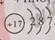 +17 2 8 7